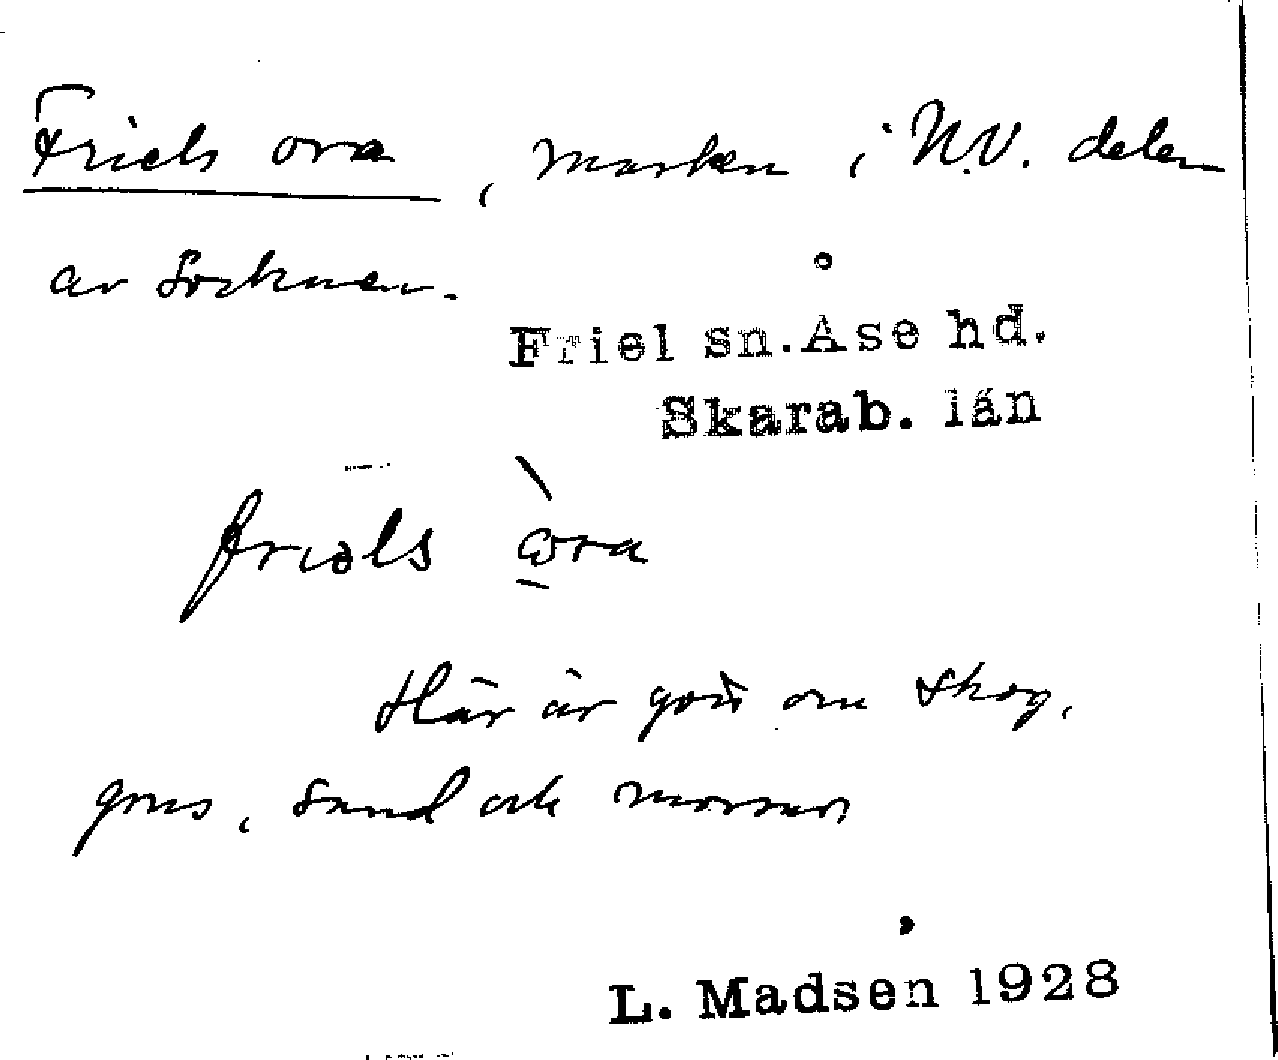 Friels ora, marken i N.V. delen
av socknen.
Friel sn. Åse hd.
Skarab. län
friəls òra
Här är gott om skog,
grus, sand och mossar
L. Madsen 1928